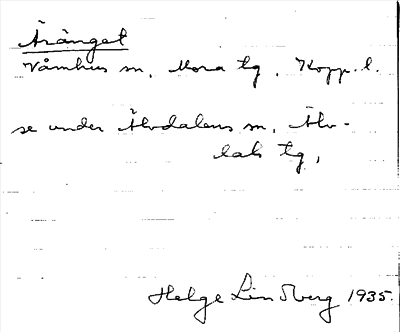 Åränget
Våmhus sn, Mora tg, Kopp. l.
se under Älvdalens sn, Älv-
dals tg,
Helge Lindberg 1935.